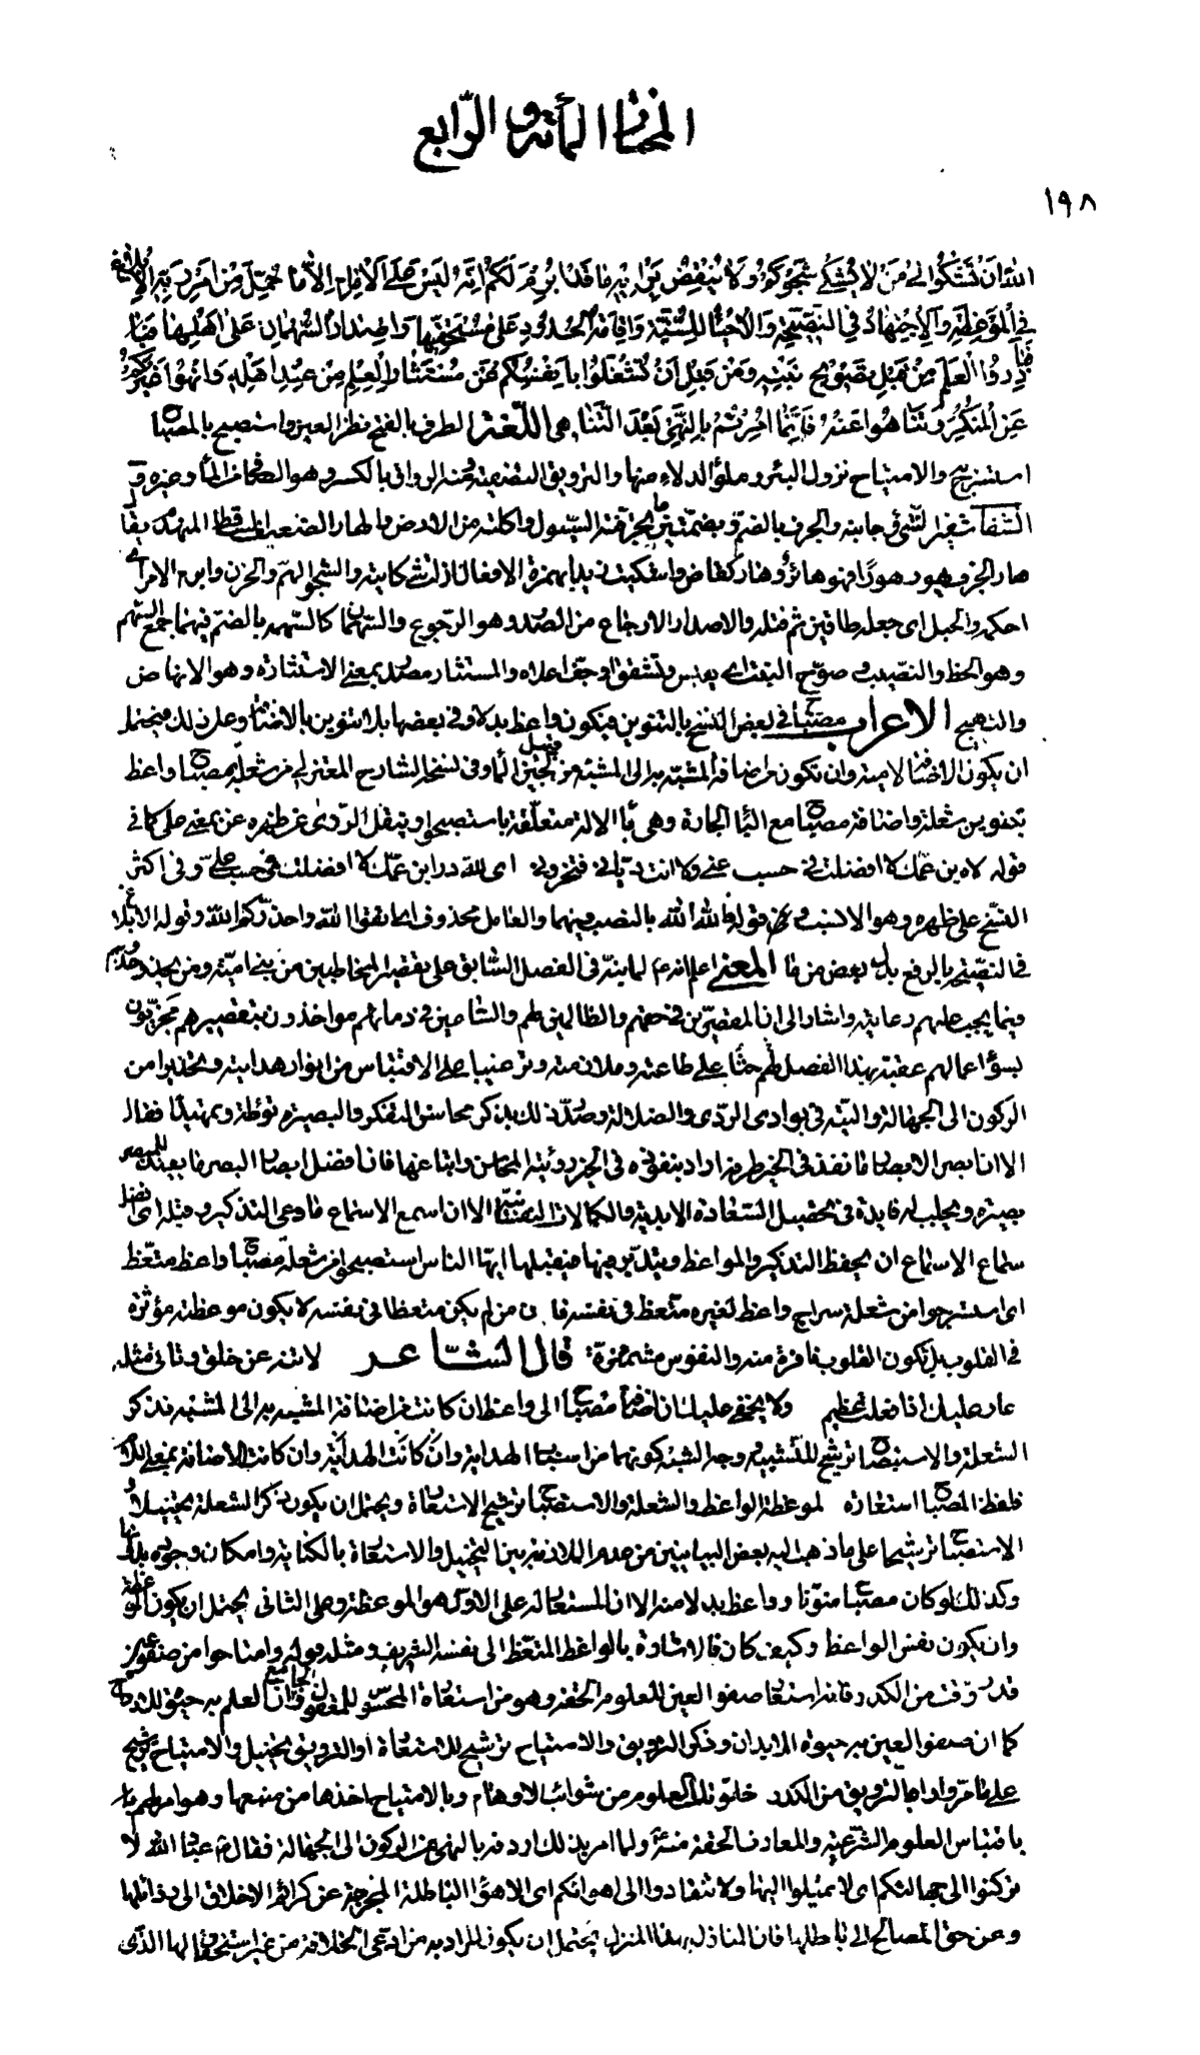 المختار المأة والرابع
١٩٨
اللهَ أَنْ تَشْكُوا إِلى مَنْ لا يُشْكِي شَجْوَكُمْ وَلا يَنْقُضُ بِرَأْيِهِ ما قَدْ أُبْرِمَ لَكُمْ إِنَّهُ لَيْسَ عَلَى الْإِمامِ إِلّا ما حُمِّلَ مِنْ أَمْرِ رَبِّهِ الْإِبْلاغُ
فِي الْمَوْعِظَةِ وَالْإِجْتِهادُ فِي النَّصيحَةِ وَالْإِحْياءُ لِلسُّنَّةِ وَإِقامَةُ الْحُدُودِ عَلى مُسْتَحِقّيها وَإِصْدارُ السُّهْمانِ عَلى أَهْلِها
فَبادِرُوا الْعِلْمَ مِنْ قَبْلِ تَصْويحِ نَبْتِهِ وَمِنْ قَبْلِ أَنْ تُشْغَلُوا بِأَنْفُسِكُمْ عَنْ مُسْتَثارِ الْعِلْمِ مِنْ عِنْدِ أَهْلِهِ وَانْهَوْا غَيْرَكُمْ
عَنِ الْمُنْكَرِ وَتَناهَوْا عَنْهُ فَإِنَّما أُمِرْتُمْ بِالنَّهْيِ بَعْدَ التَّناهِي اللغة الطرف بالفتح نظر العين واستصبح بالمصباح
استسرج والامتياح نزول البئر وملؤ الدلاء منها والترويق التصفية ومنه الرواق بالكسر وهو الصافي من الماء وغيره و
الشفا شفير الشيء وجانبه والجرف بالضم وبضمتين ما تجرفته السيول واكلته من الارض والهار الضعيف الساقط المنهدم يقال
هار الجرف يهور هورا فهو هائر وهار كقاض واشكيت زيدا بهمزة الافعال ازلت شكايته والشجو الهم والحزن وابرم الامر اي
احكمه والحبل اى جعله طاقين ثم فتله والاصدار الارجاع من الصدر وهو الرجوع والسهمان كالسهمة بالضم فيهما جمع السهم
وهو الحظ والنصيب وصوح النبت اى يبس وتشقق او جف اعلاه والمستثار مصدر بمعنى الاستثارة وهو الانهاض
والتهييج الاعراب مصباح في بعض النسخ بالتنوين فيكون واعظ بدلا وفي بعضها بلا تنوين بالاضافة وعلى ذلك فيحتمل
ان يكون الاضافة لامية وان تكون من اضافة المشبه به الى المشبه من قبيل لجين الماء وفي نسخة الشارح المعتزلي من شعلة مصباح واعظ
بتنوين شعلة واضافة مصباح مع الباء الجارة وهي باء الالة متعلقة باستصبحوا وينقل الردى عن ظهره عن بمعنى على كما في
قوله لاه ابن عمك لا افضلت في حسب عني ولا انت ديّاني فتخزوني اى لله در ابن عمك لا افضلت في حسب علي وفي اكثر
النسخ على ظهره وهو الانسب وقوله فالله الله بالنصب فيهما والعامل محذوف اى اتقوا الله واحذركم الله وقوله الابلاغ
في النصيحة بالرفع بدل بعض من ما المعنى اعلم انه لما بنى في الفصل السابق على تقصير المخاطبين من بني امية ومن يحذو حذوهم
فيما يجب عليهم رعايته واشار الى ان المقصرين في حقهم والظالمين لهم والساعين في دمائهم مواخذون بتقصيرهم مجزيون
بسوء اعمالهم عقبه بهذا الفصل حثا لهم على طاعته وملازمته وترغيبا على الاقتباس من انوار هدايته وتحذيرا من
الركون الى الجهالة والتيه في بوادى الردى والضلالة وصدر ذلك بذكر محاسن التفكر والبصيرة توطئة وتمهيدا فقال
الا ان ابصر الابصار ما نفذ في الخير طرفه اراد بنفوذه في الخير رؤية المحاسن واتباعها فان افضل ابصار البصر ما يفيد للمبصر
بصيرة ويجلب له فايدة في تحصيل السعادة الابدية والكمالات النفسانية الا ان اسمع الاسماع ما وعى التذكير وقبله اى افضل
سماع الاسماع ان يحفظ التذكير والمواعظ ويتدبر فيها فيقبلها ايها الناس استصبحوا من شعلة مصباح واعظ متعظ
اى استسرجوا من شعلة سراج واعظ لغيره متعظ في نفسه فان من لم يكن متعظا في نفسه لا يكون موعظته مؤثرة
في القلوب بل تكون القلوب نافرة منه والنفوس مشمئزة قال الشاعر لا تنه عن خلق وتاتى مثله
عار عليك اذا فعلت عظيم ولا يخفى عليك ان اضافة مصباح الى واعظ ان كانت من اضافة المشبه به الى المشبه فذكر
الشعلة والاستصباح ترشيح للتشبيه ووجه الشبه كونهما من اسباب الهداية وان كانت الاضافة بمعنى اللام
فلفظ المصباح استعارة لموعظة الواعظ والشعلة والاستصباح ترشيح الاستعارة ويحتمل ان يكون ذكر الشعلة تخييلا و
الاستصباح ترشيحا على ما ذهب اليه بعض البيانيين من عدم الملازمة بين التخييل والاستعارة بالكناية وامكان وجوده بدونها
وكذلك لو كان مصباح منونا وواعظ بدلا منه الا ان المستعار له على الاول هو الموعظة وعلى الثاني يحتمل ان يكون الموعظة
وان يكون نفس الواعظ وكيف كان فالاشارة بالواعظ المتعظ الى نفسه الشريف ومثله قوله وامتاحوا من صفو عين
قد روقت من الكدر فانه استعار صفو العين للعلوم الحقة وهو من استعارة المحسوس للمعقول والجامع ان العلم به حيوة الارواح
كما ان صفو العين به حيوة الابدان وذكر الترويق والامتياح ترشيح للاستعارة او الترويق تخييل والامتياح ترشيح
على ما مر واراد بالترويق من الكدر خلو تلك العلوم من شوائب الاوهام وبالامتياح اخذها من منبعها وهو امر لهم
باقتباس العلوم الشرعية والمعارف الحقة منه ولما امر بذلك اردفه بالنهى عن الركون الى الجهالة فقال عباد الله لا
تركنوا الى جهالتكم اى لا تميلوا اليها ولا تنقادوا الى اهوائكم اى الاهواء الباطلة المخرجة عن كرائم الاخلاق الى رذائلها
وعن حق المصالح الى باطلها فان النازل بهذا المنزل يحتمل ان يكون المراد به من ادعى الخلافة من غير استحقاق لها الذى